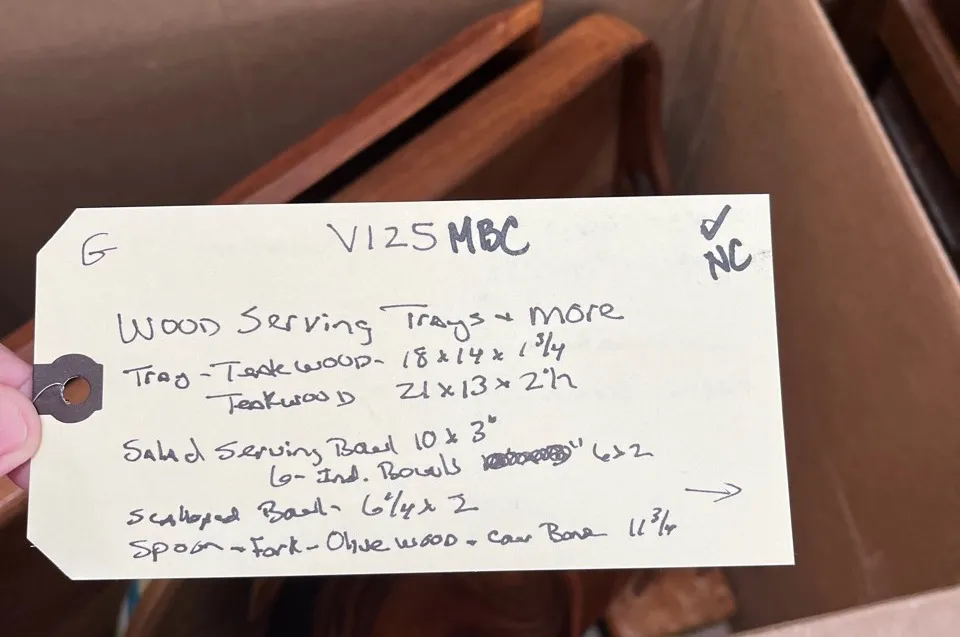 G V125 MBC ✓
NC
Wood Serving Trays + more
Tray - Teakwood - 18 x 14 x 1 3/4
Teakwood 21 x 13 x 2"h
Salad Serving Bowl 10 x 3"
6 - Ind. Bowls 6x2
Scalloped Bowl - 6 1/4 x 2
Spoon - Fork - Olive wood + Cow Bone 11 3/4
→